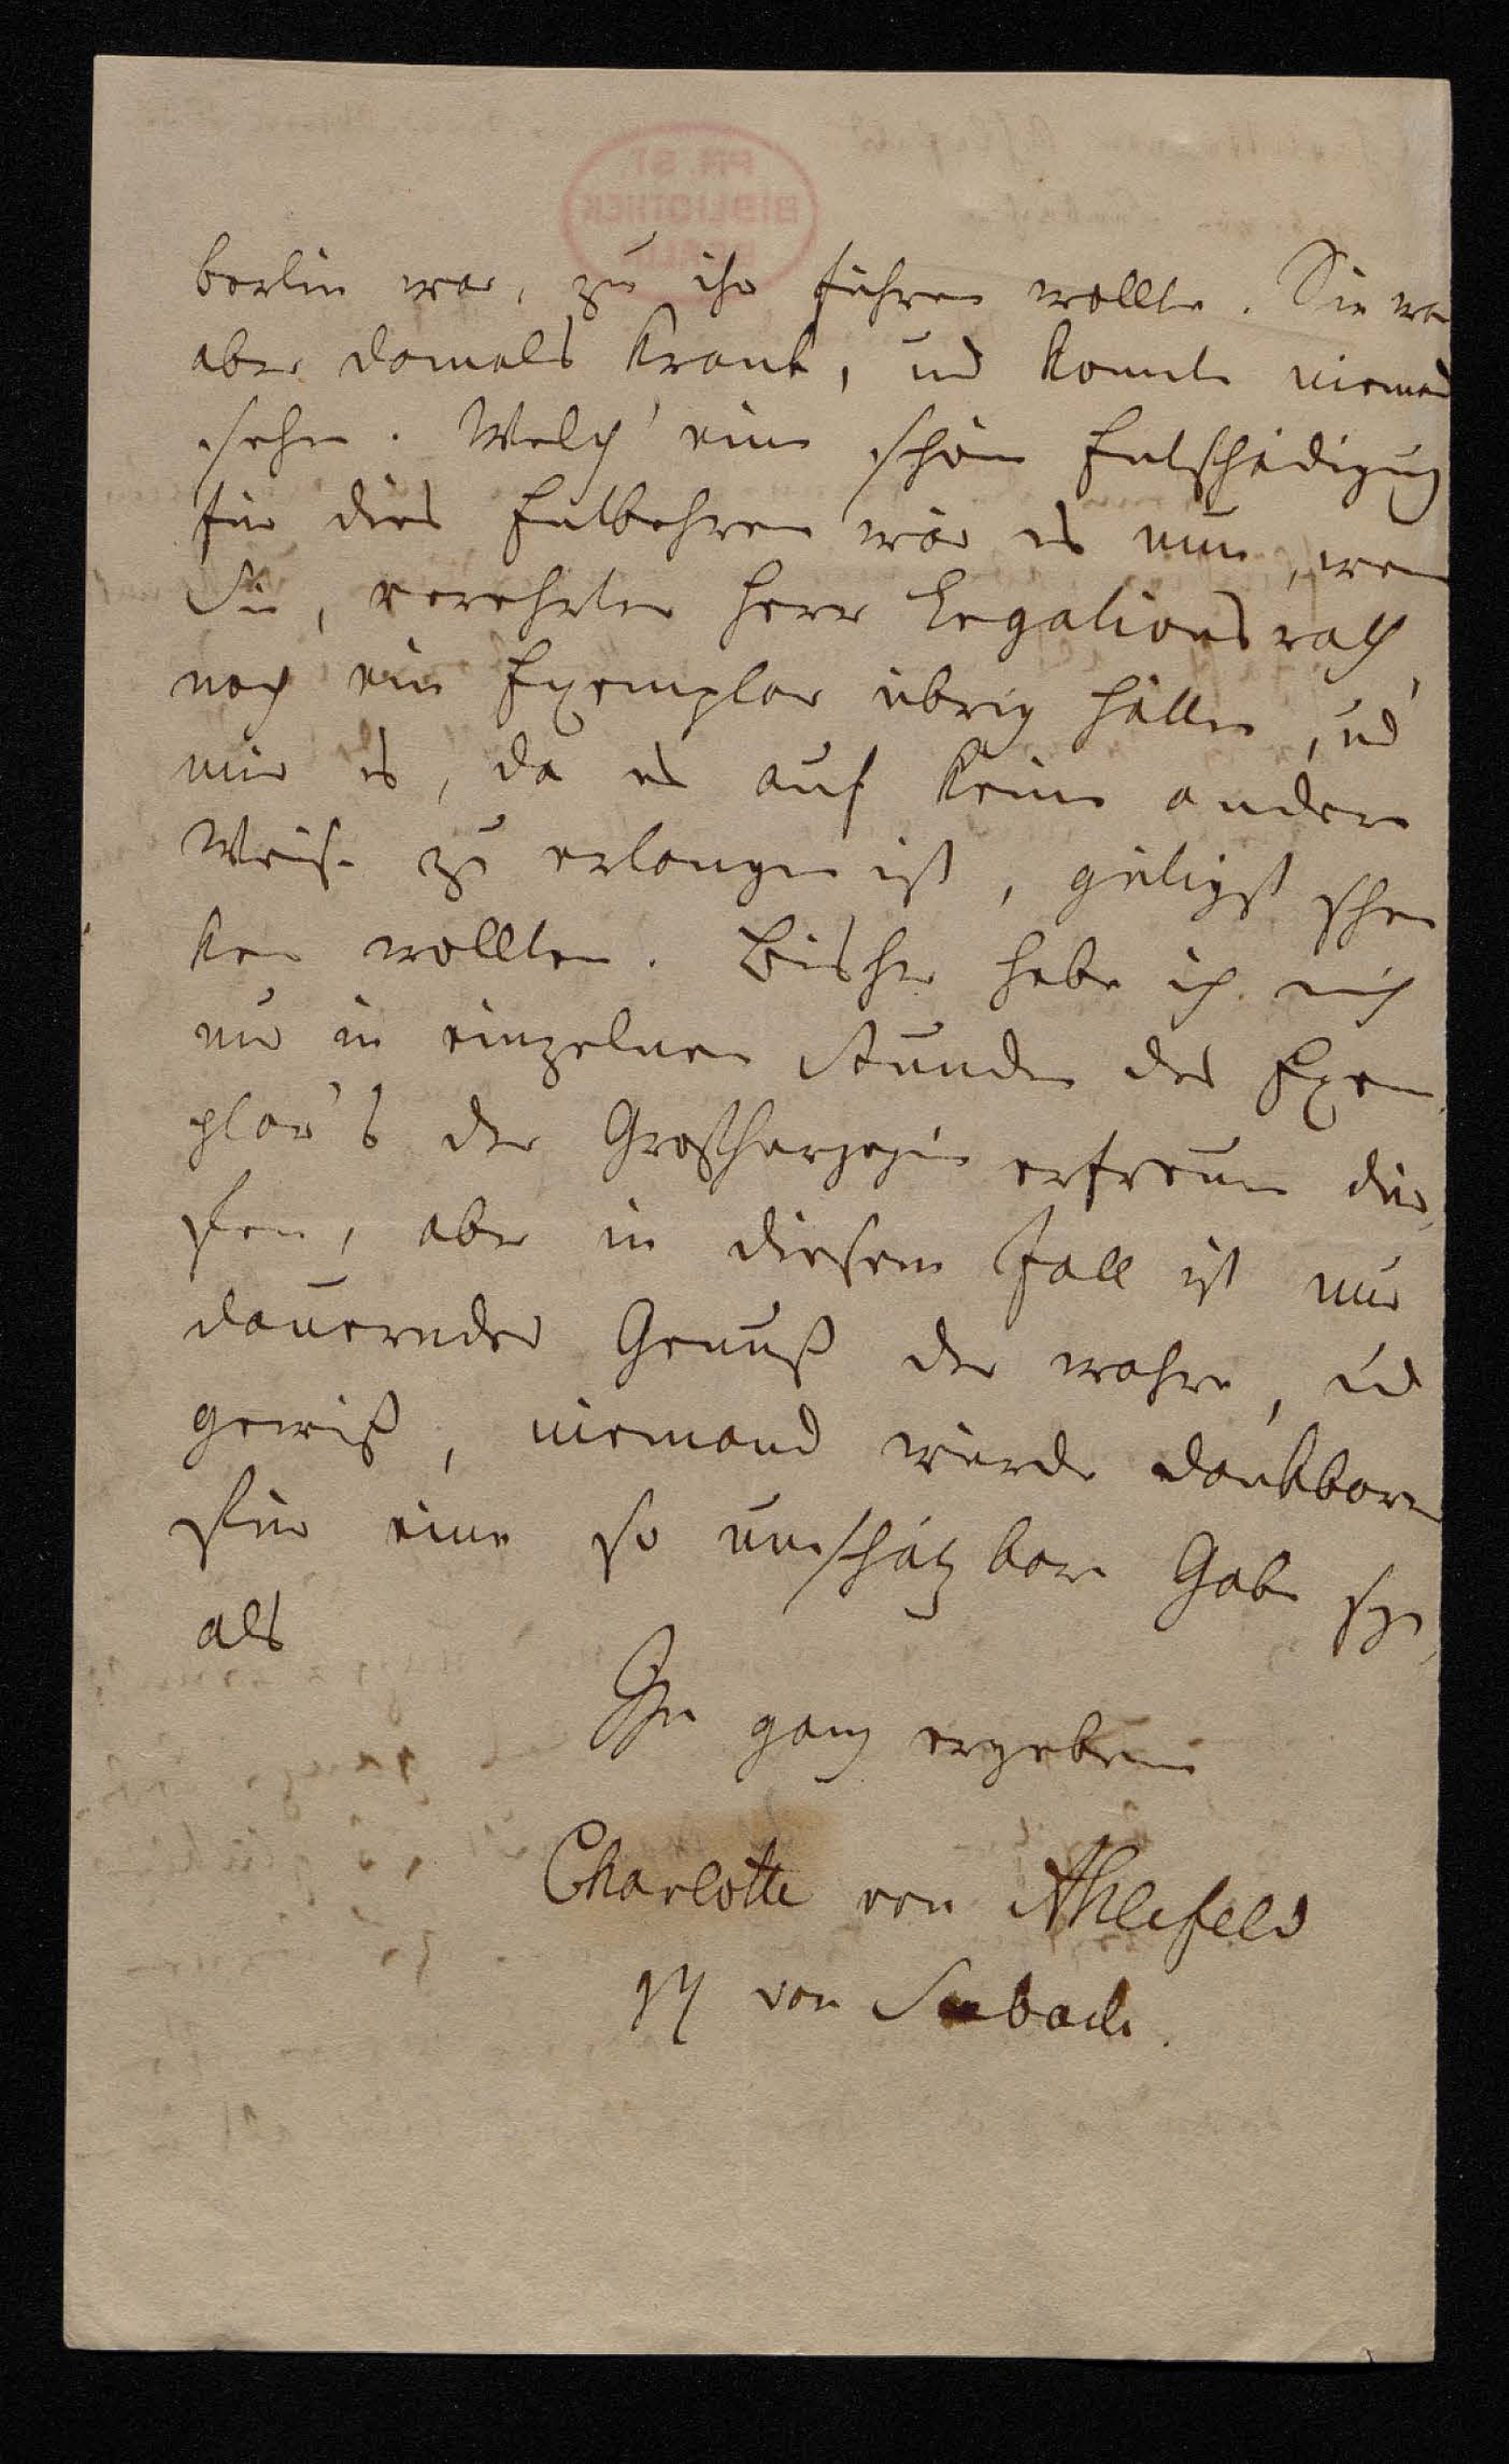 Berlin war, zu ihr führen wollte. Sie war
aber damals krank, und konnte niemand
sehn. Welch' eine schöne Entschädigung
für dies Entbehren wär es nun, wenn
Sie, verehrter Herr Legationsrath,
noch ein Exemplar übrig hätten, und
mir es, da es auf keine andere
Weise zu erlangen ist, gütigst schen
ken wollten. Bisher habe ich mich
nur in einzelnen Stunden des Exem
plar's der Großherzogin erfreuen dür
fen, aber in diesem Fall ist nur
dauernder Genuß der wahre, und
gewiß, niemand würde dankbarer
für eine so unschätzbare Gabe seyn,
als
Ihre ganz ergebene
Charlotte von Ahlefeld
geb von Seebach.
PR. ST.
BIBLIOTHEK
BERLIN